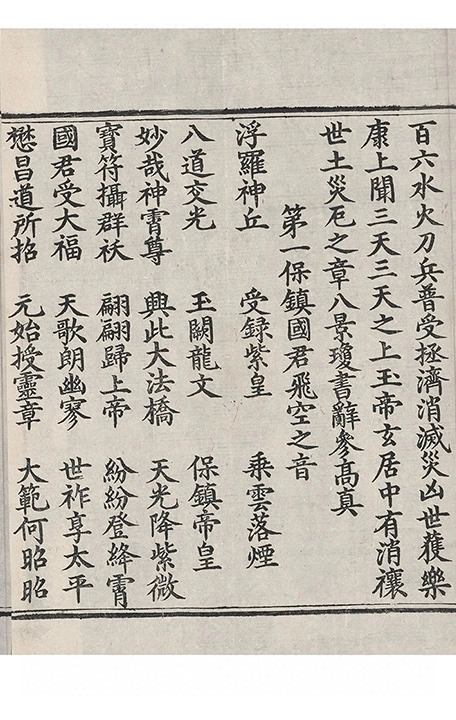 百六水火刀兵普受拯濟消滅災凶世蒦樂
康上聞三天三天之上玉帝玄居中有消禳
世土災厄之章八景瓊書辭參髙真
第一保鎮國君飛空之音
浮羅神丘　受録紫皇　乘雲落煙
八道交光　玉闕龍文　保鎮帝皇
妙哉神霄尊　興此大法橋　天光降紫微
寶符攝群祅　翩翩歸上帝　紛紛登絳霄
國君受大福　天歌朗幽寥　世祚享太平
懋昌道所招　元始授靈章　大範何昭昭